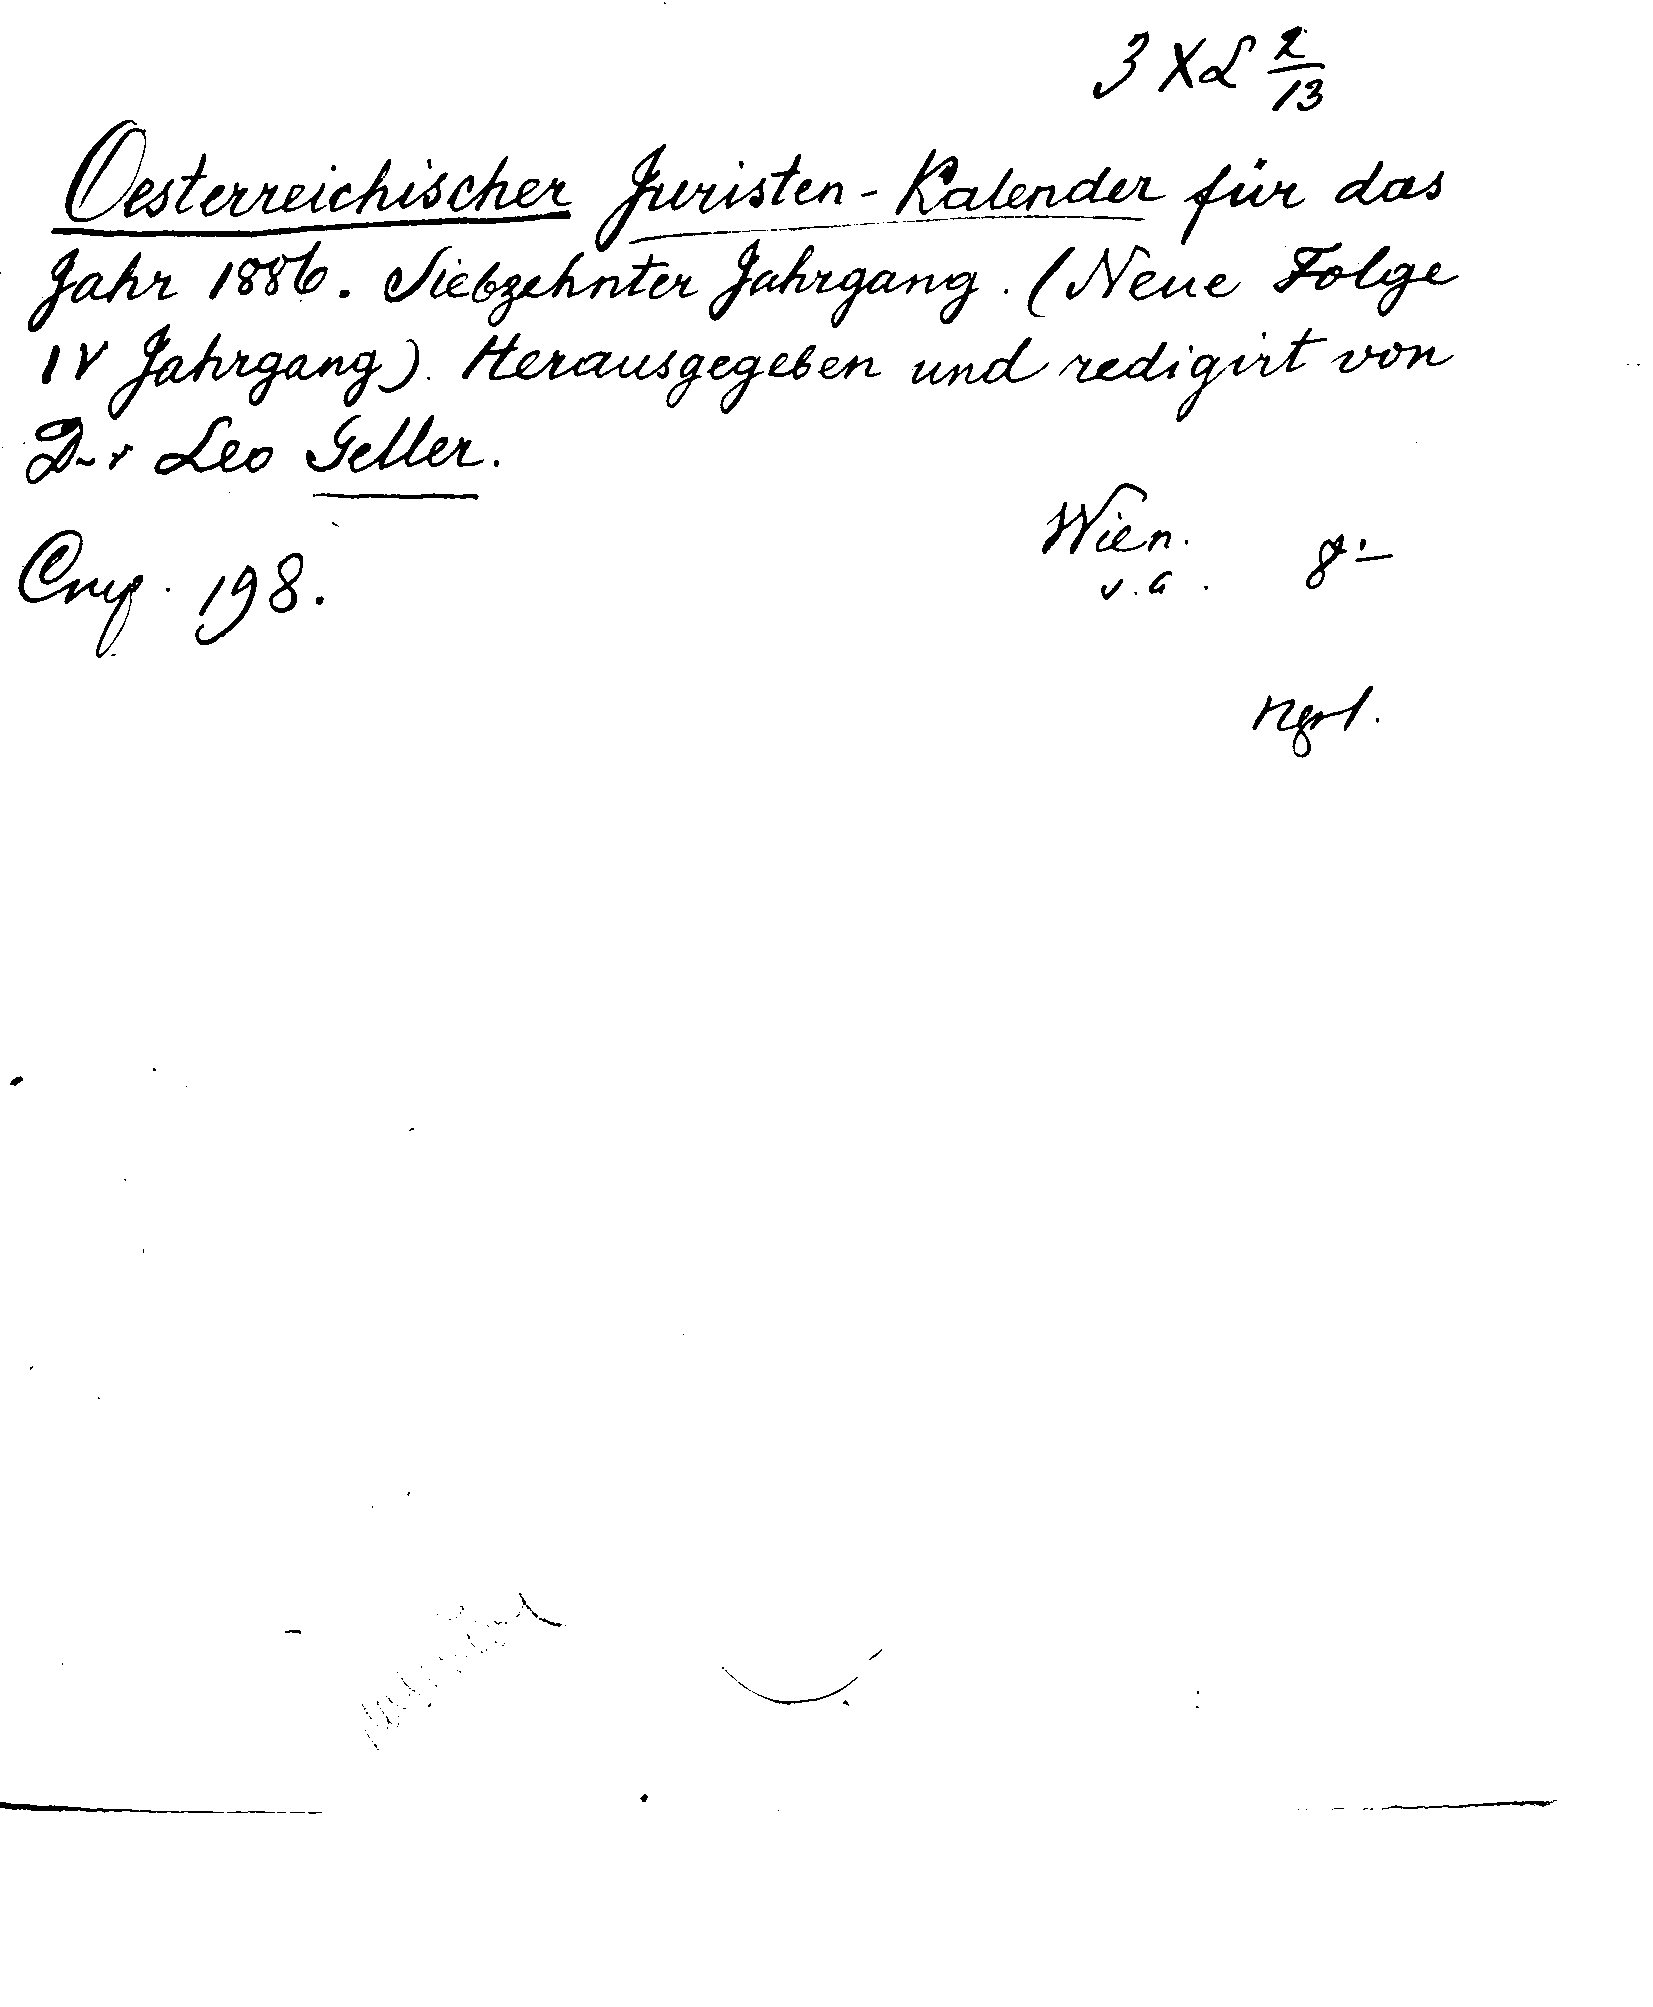 3 XL 2/13
Oesterreichischer Juristen-Kalender für das
Jahr 1886. Siebzehnter Jahrgang. (Neue Folge
IV Jahrgang). Herausgegeben und redigirt von
D-r Leo Geller.
Wien. 8°-
Стр. 198.